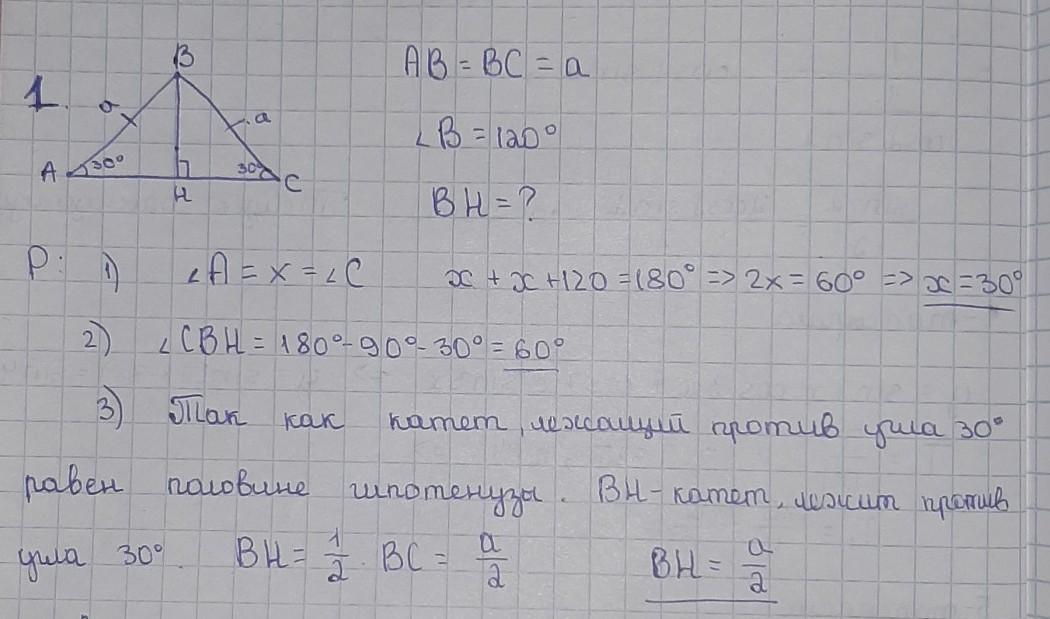 B
AB = BC = a
1.
a
a
∠B = 120°
A 30° 30° C
H
BH = ?
Р: 1) ∠A = x = ∠C x + x + 120 = 180° => 2x = 60° => x = 30°
2) ∠CBH = 180° - 90° - 30° = 60°
3) Так как катет, лежащий против угла 30°
равен половине гипотенузы. BH - катет, лежит против
угла 30°. BH = 1/2 · BC = a/2 BH = a/2